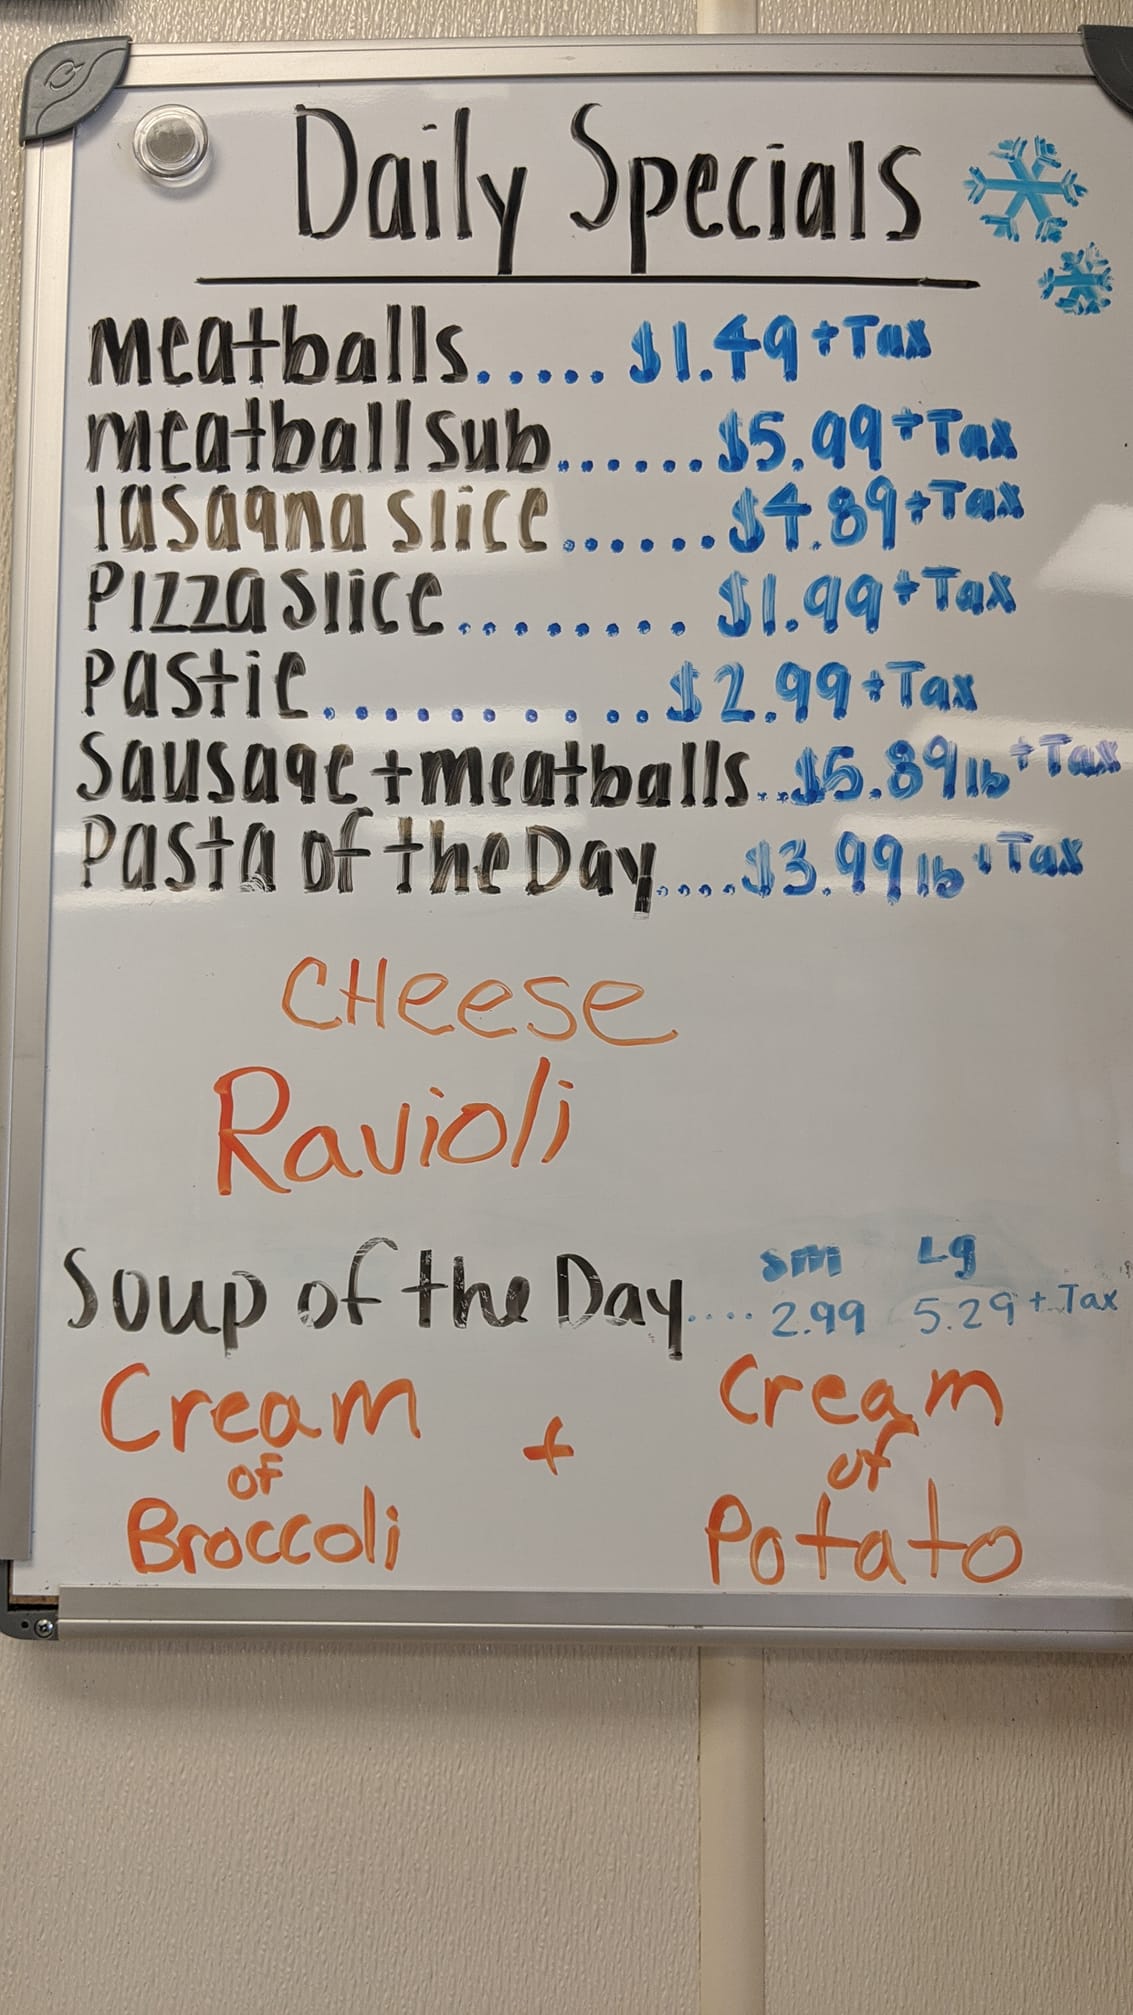 Daily Specials
Meatballs..... $1.49 + Tax
Meatball Sub......$5.99 + Tax
lasagna slice......$4.89 + Tax
Pizza slice........ $1.99 + Tax
Pastie...........$2.99 + Tax
Sausage + meatballs..$5.89 lb + Tax
Pasta of the Day....$3.99 lb + Tax
CHeese
Ravioli
sm Lg
Soup of the Day.... 2.99 5.29 + Tax
Cream + Cream
of of
Broccoli Potato